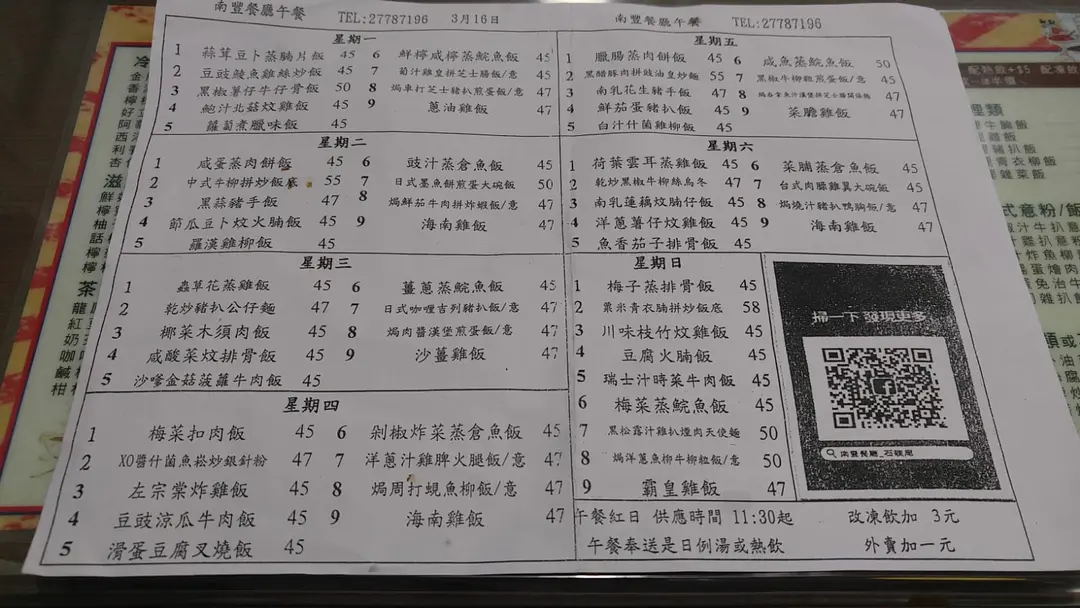 南豐餐廳午餐 TEL:27787196 3月16日
南豐餐廳午餐 TEL:27787196
星期一
1 蒜茸豆卜蒸腩片飯 45
2 豆豉鯪魚雞絲炒飯 45
3 黑椒薯仔牛仔骨飯 50
4 鮑汁北菇炆雞飯 47
5 蘿蔔煮臘味飯 45
6 鮮檸咸檸蒸鯇魚飯 45
7 葡汁雞皇拼芝士腸飯/意 45
8 焗車打芝士豬扒煎蛋飯/意 47
9 蔥油雞飯 47
星期二
1 咸蛋蒸肉餅飯 45
2 中式牛柳拼炒飯底 55
3 黑蒜豬手飯 47
4 節瓜豆卜炆火腩飯 45
5 羅漢雞柳飯 45
6 豉汁蒸倉魚飯 45
7 日式墨魚餅煎蛋大碗飯 50
8 焗鮮茄牛肉拼炸蝦飯/意 47
9 海南雞飯 47
星期三
1 蟲草花蒸雞飯 45
2 乾炒豬扒公仔麵 47
3 椰菜木須肉飯 45
4 咸酸菜炆排骨飯 45
5 沙嗲金菇菠蘿牛肉飯 45
6 薑蔥蒸鯇魚飯 45
7 日式咖喱吉列豬扒飯/意 47
8 焗肉醬漢堡煎蛋飯/意 47
9 沙薑雞飯 47
星期四
1 梅菜扣肉飯 45
2 XO醬什菌魚崧炒銀針粉 47
3 左宗棠炸雞飯 45
4 豆豉涼瓜牛肉飯 45
5 滑蛋豆腐叉燒飯 45
6 剁椒炸菜蒸倉魚飯 45
7 洋蔥汁雞脾火腿飯/意 47
8 焗周打蜆魚柳飯/意 47
9 海南雞飯 47
星期五
1 臘腸蒸肉餅飯 45
2 黑醋豚肉拼豉油皇炒麵 55
3 南乳花生豬手飯 47
4 鮮茄蛋豬扒飯 45
5 白汁什菌雞柳飯 45
6 咸魚蒸鯇魚飯 50
7 黑椒牛柳粒煎蛋飯/意 45
8 47
9 菜脆雞飯 47
星期六
1 荷葉雲耳蒸雞飯 45
2 乾炒黑椒牛柳絲烏冬 47
3 南乳蓮藕炆腩仔飯 45
4 洋蔥薯仔炆雞飯 45
5 魚香茄子排骨飯 45
6 菜脯蒸倉魚飯 45
7 台式肉臊雞翼大碗飯 45
8 焗燒汁豬扒鴨胸飯/意 47
9 海南雞飯 47
星期日
1 梅子蒸排骨飯 45
2 粟米青衣腩拼炒飯底 58
3 川味枝竹炆雞飯 45
4 豆腐火腩飯 45
5 瑞士汁時菜牛肉飯 45
6 梅菜蒸鯇魚飯 45
7 黑松露汁雞扒煙肉天使麵 50
8 焗洋蔥魚柳牛柳粒飯/意 50
9 霸皇雞飯 47
掃一下 發現更多
南豐餐廳_石硤尾
午餐紅日 供應時間 11:30起 改凍飲加 3元
午餐奉送是日例湯或熱飲 外賣加一元